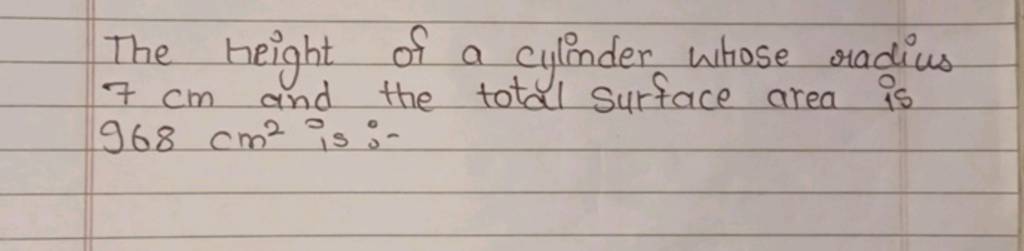 The height of a cylinder whose radius
7 cm and the total surface area is
968 cm² is :-